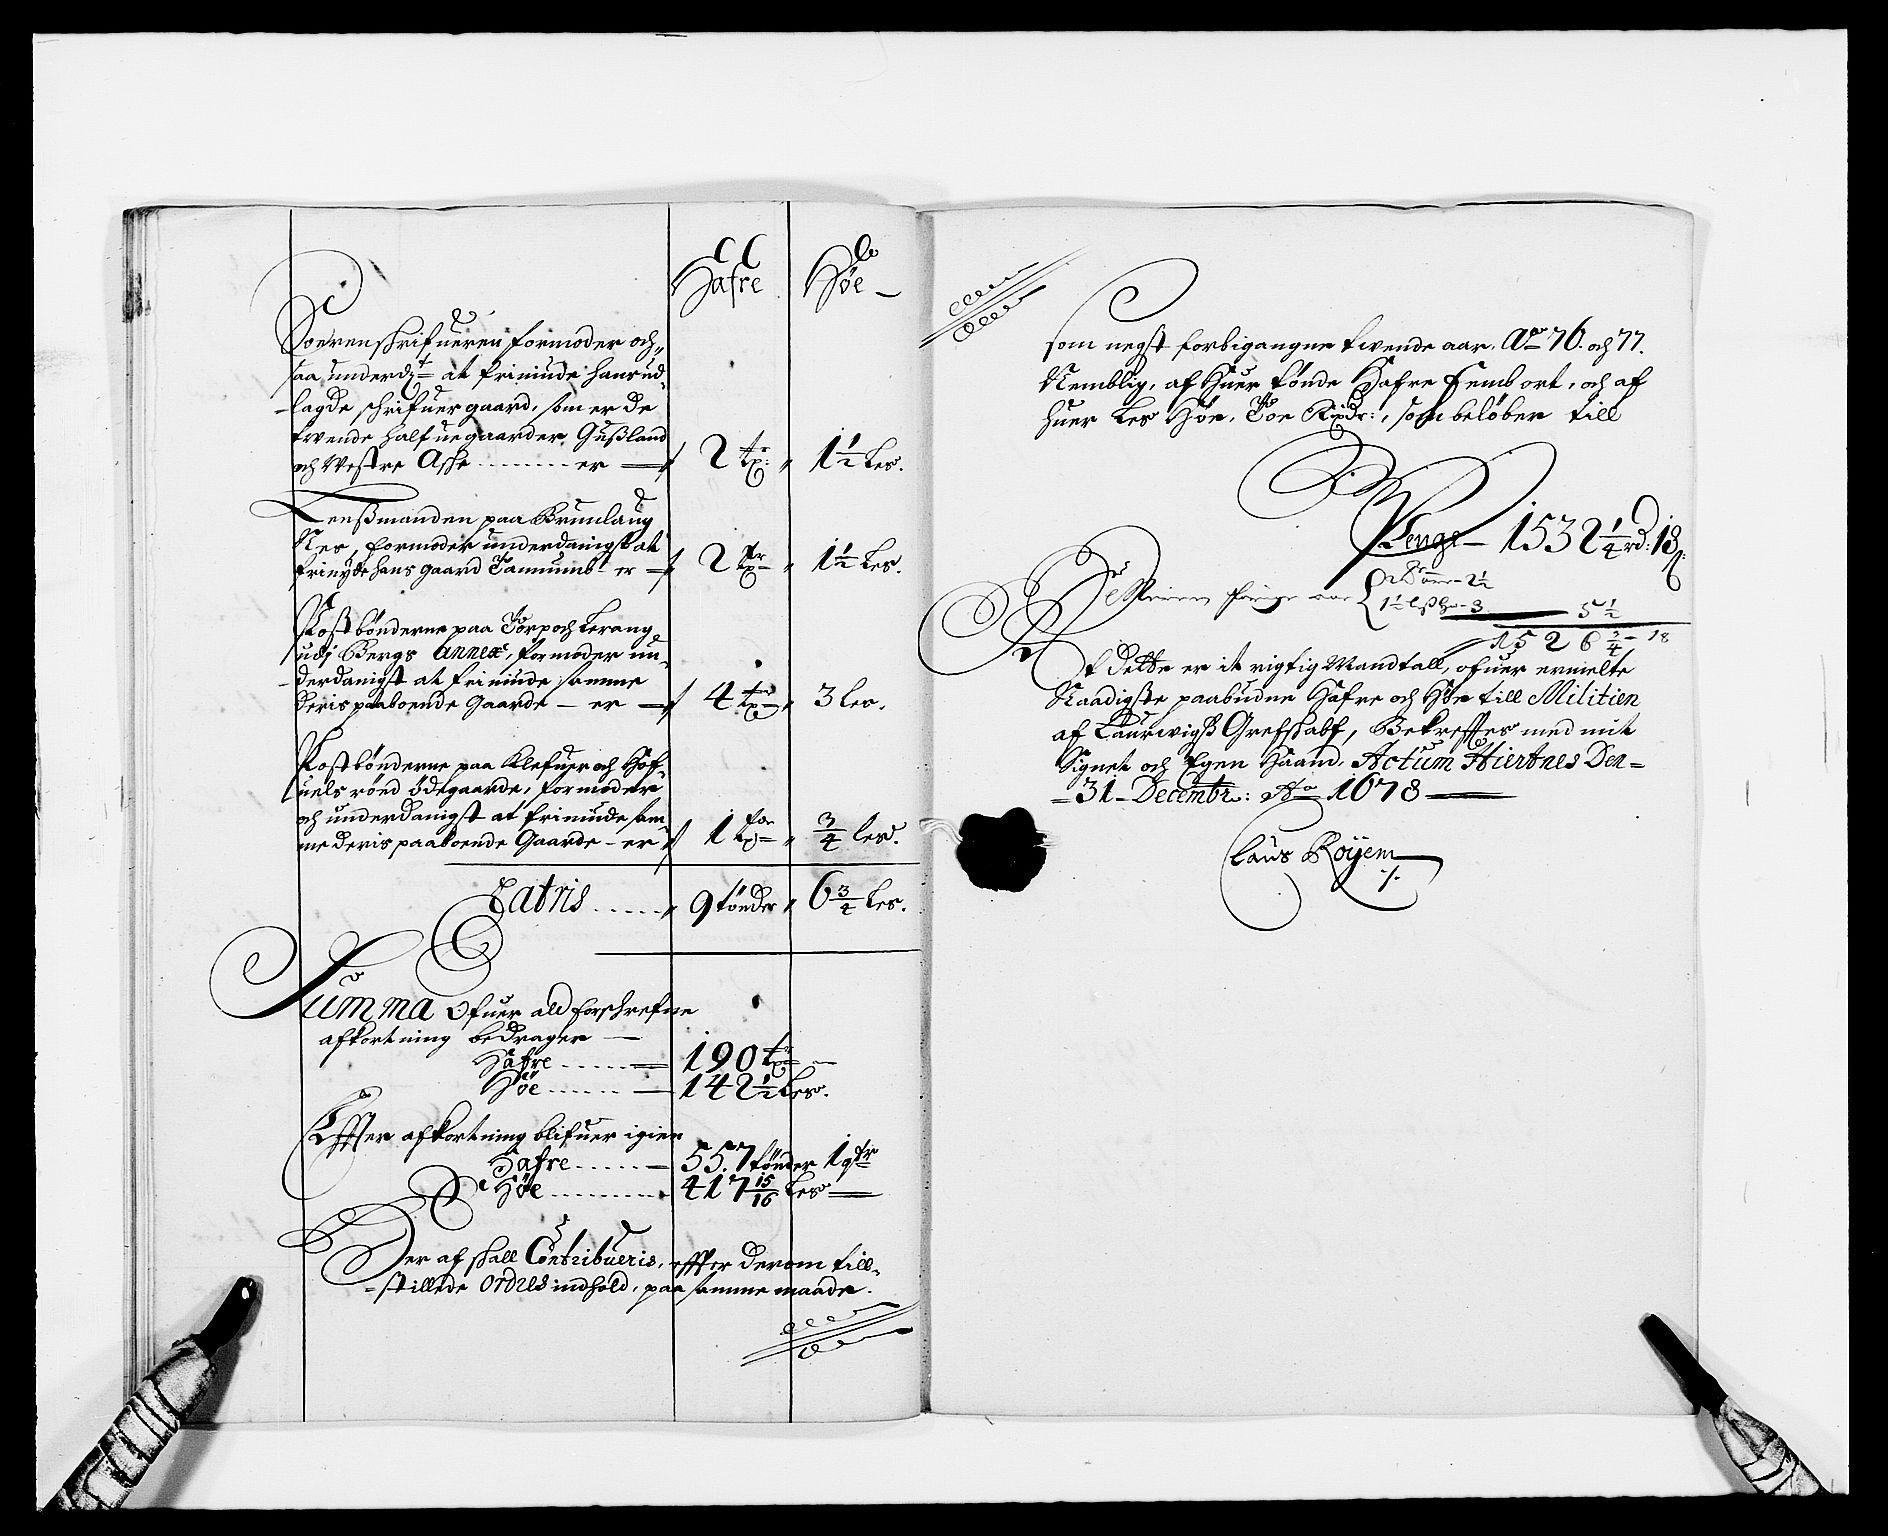 Hafre Høe
Soerenskrifueren formoder och
saa underd: at friniude hans ud-
lagde schrifuergaard, som er de
tvende halfuegaarder, Gußland
och Westre Aske er 2 tr: 1½ Les.
Lensmanden paa Brunlaug
Nes, formoder underdanigst at
frinyde hans gaard Tammums er 2 tr 1½ Les.
Postbønderne paa Torp och Berang
udj Bergs Annex, formoder un-
derdanigst at friniude samme
deris paaboende Gaarde er 4 tr 3 Les.
Postbønderne paa Klefuer och Hof-
uels rønd ødegaarde, formoder
och underdanigst at friniude sam-
me deris paaboende Gaarde er 1 tør ¾ les.
Latris 9 tønder 6¾ Les.
Summa ofuer ald forschrefne
afkortning bedrager
Hafre 190 tr
Høe 142½ Les.
Effter afkortning blifuer igien
Hafre 557 tønder 1 qtr
Høe 417 15/16 Les
Der af skall Contribueris, effter derom till-
stillede Ordres indhold, paa samme maade.
som negst forbigangne tvende aar, Ao 76. och 77.
Nemblig, af huer tønde Hafre femb ort, och af
huer Les Høe, Toe Rixdr:, som beløber till
Penge 1532¼ rd: 18 s:
forige aar 2½
1½ 3 5½
1526¾ 18
At dette er it rigtig Mandtall, ofuer ermelte
Naadigste paabudne Hafre och Høe till Militien
af Laurwigs Grefskabf, Bekreftes med mit
Signet och Egen Haand. Actum Hiertnes Den
31 Decembr: Ao 1678
Claus Röyem